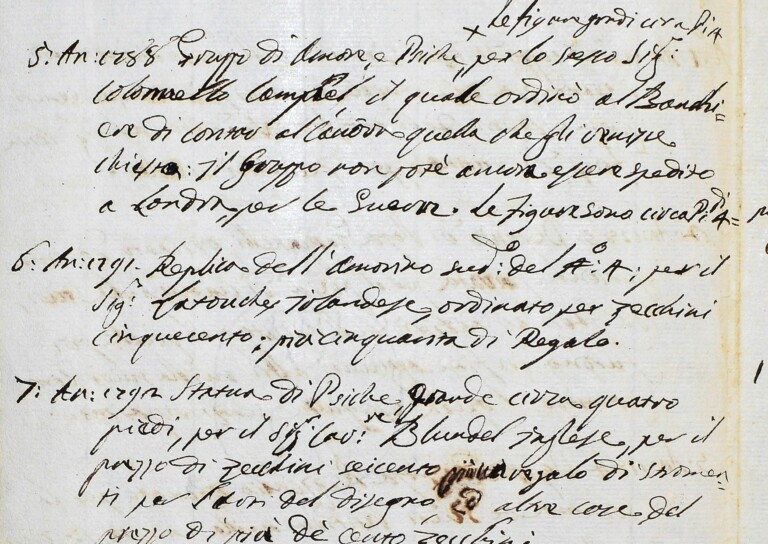 × Le figure grandi circa Pi 4
5: An: 1788 Gruppo di Amore, e Psiche, per lo stesso Sig.r
Colonnello Campbel il quale ordinò al Banchi=
ere di contar al Canòva quella che gli venisse
chiesta: il Gruppo non potè ancora essere spedito
a Londra, per le Guerre. Le figure sono circa Pi.di 4=
6: An: 1791. Replica dell'Amorino sud.o del N.o: 4: per il
Sig.r Latouche, Irlandese, ordinato per zecchini
cinquecento; più cinquanta di Regalo.
7: An: 1792 Statua di Psiche, grande circa quatro
piedi, per il Sig.r Cav.re Blundel Inglese, per il
prezzo di zecchini seicento, più un regalo di stromen=
ti per l'autori del disegno, ed altre cose del
prezzo di più dè cento zecchini.